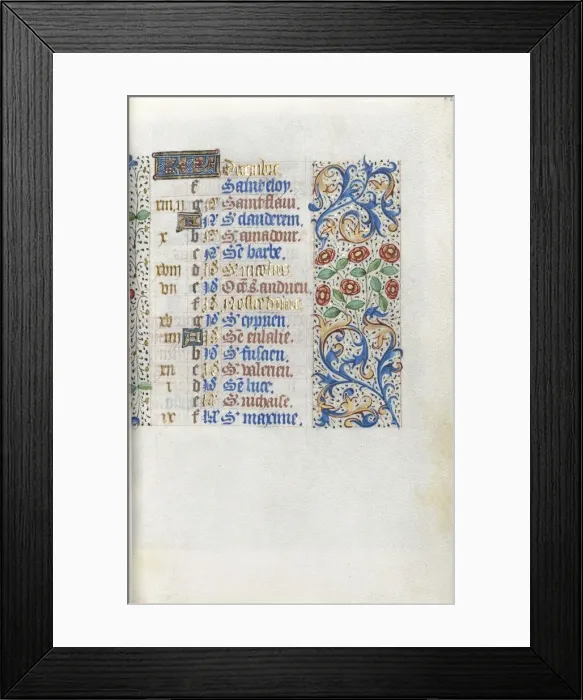 Decembre.
f Saint eloy.
xiii g Saint flaui.
A S' clauderem.
x b S' amadour.
c Ste barbe.
xviii d S' nicolas
vii e Oct. s. andrieu.
f Nostre dame.
xv g S' cyprien.
iiii A Ste eulalie.
b S' fuscien.
xii c S' valerien.
i d Ste luce.
e S' nichaise.
ix f S' maxime.